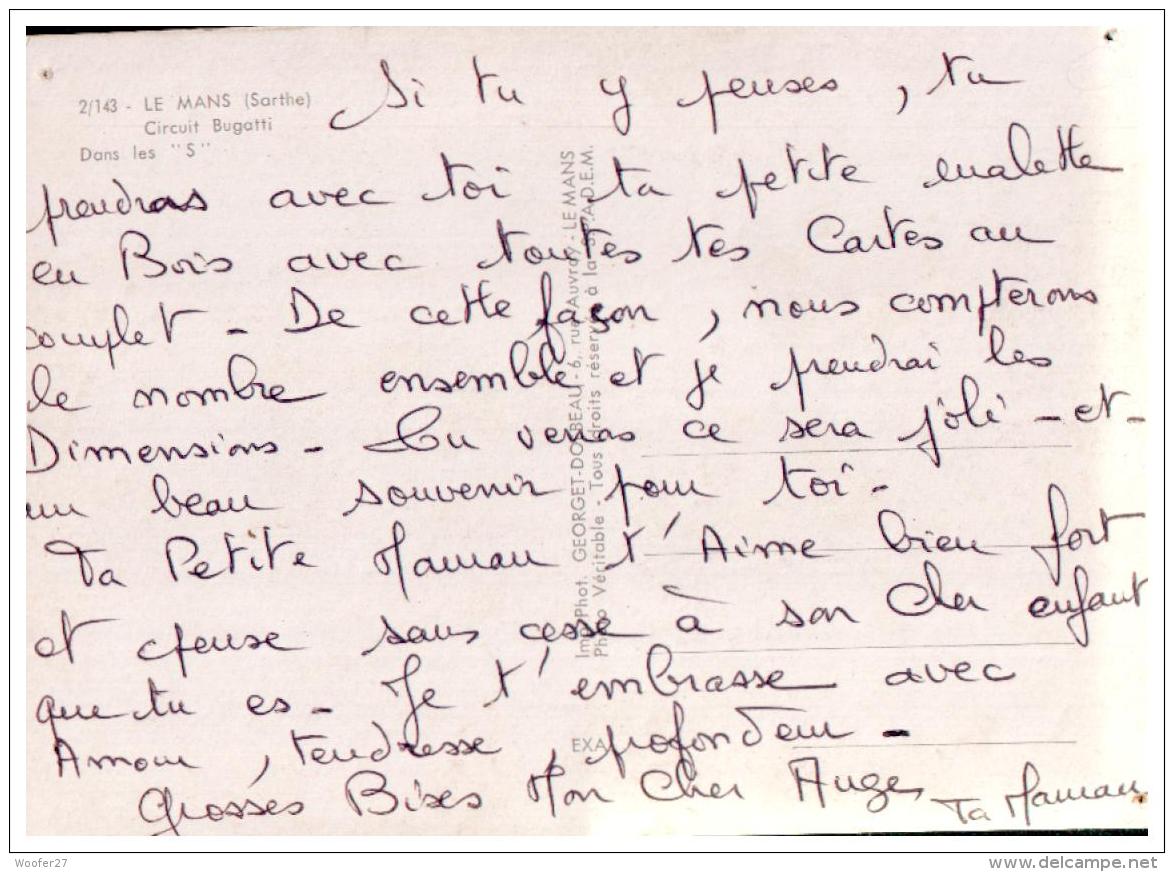 2/143 - LE MANS (Sarthe)
Circuit Bugatti
Dans les "S"
Si tu y penses, tu
prendras avec toi ta petite malette
en Bois avec toutes tes Cartes au
complet - De cette façon, nous compterons
le nombre ensemble et je prendrai les
Dimensions - Tu verras ce sera joli - et -
un beau souvenir pour toi -
Ta Petite Maman t'Aime bien fort
et pense sans cesse à son Cher enfant
que tu es - Je t'embrasse avec
Amour, tendresse, profondeur -
Grosses Bises Mon Cher Ange,
Ta Maman
Imp. Phot. GEORGET-DOMBEAU - 6, rue Auvray - LE MANS
Photo Véritable - Tous droits réservés à la S.P.A.D.E.M.
EXA
Woofer27
www.delcampe.net